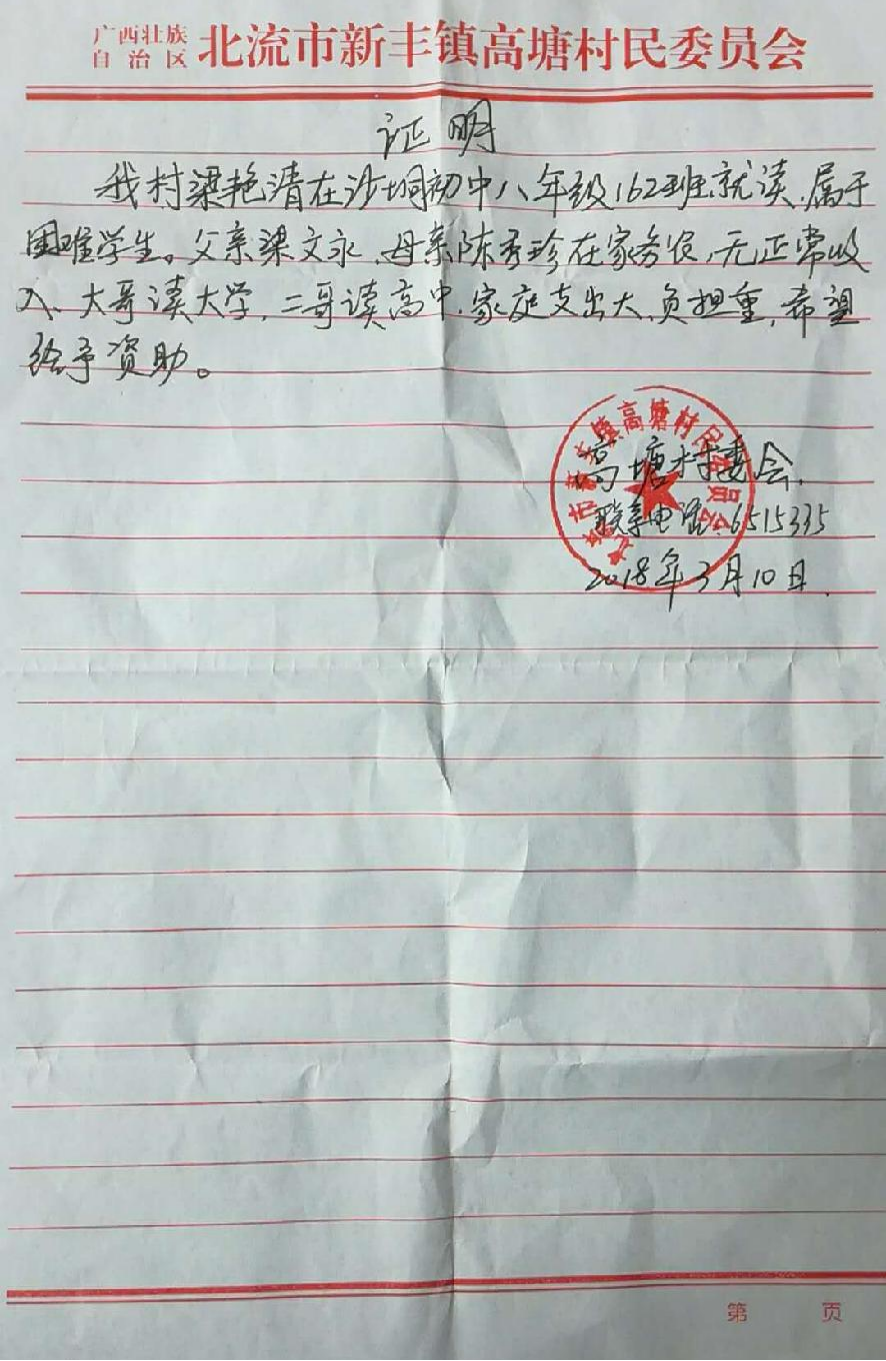 广西壮族
自治区
北流市新丰镇高塘村民委员会
证明
我村梁艳清在沙垌初中八年级162班就读,属于
困难学生。父亲梁文永、母亲陈秀珍在家务农,无正常收
入、大哥读大学,二哥读高中,家庭支出大、负担重,希望
给予资助。
北流市新丰镇高塘村民委员会
高塘村委会.
联系电话:6515335
2018年3月10日.
第 页